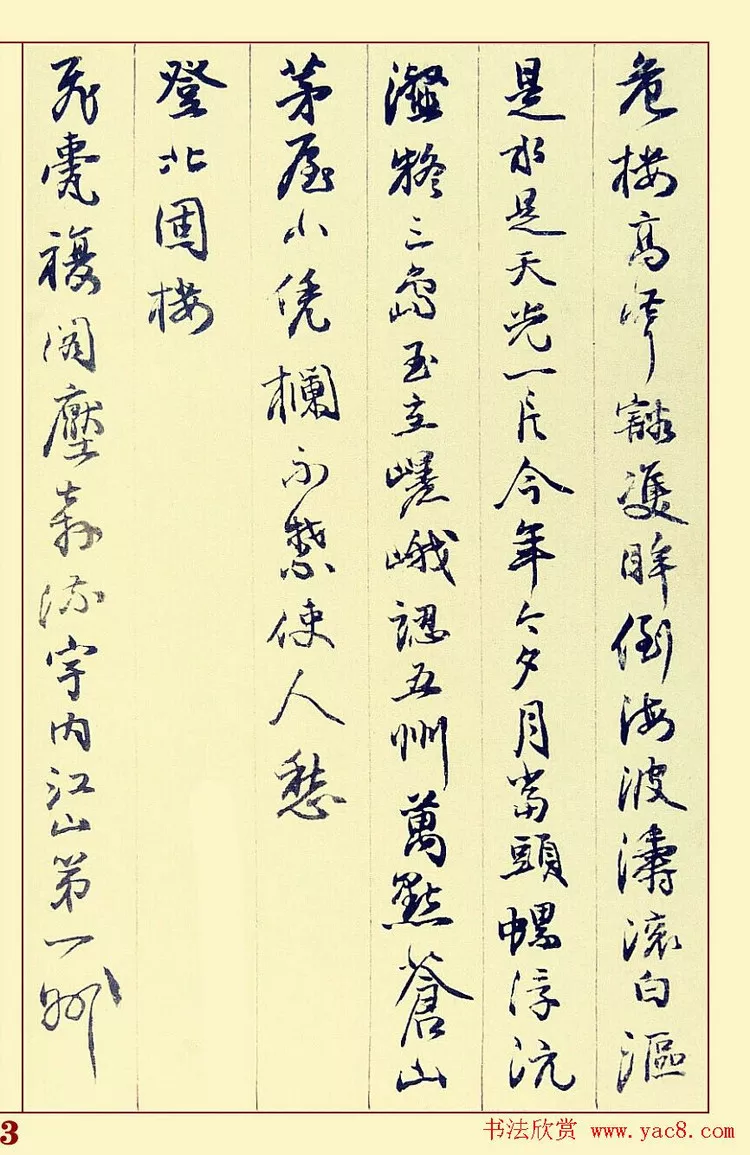 危楼高聳豁雙眸倒海波濤滾白漚
是水是天光一片今年今夕月當頭螺浮沆
瀣终三島玉立嵯峨認五州萬點蒼山
茅屋小凭欄不禁使人愁
登北固楼
飛甍複閣壓奔流宇内江山第一州
3
书法欣赏 www.yac8.com